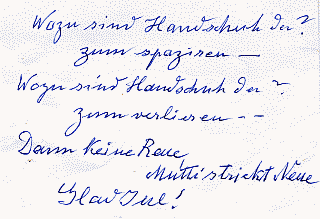 Wozu sind Handschuh da?
zum spaziren —
Wozu sind Handschuh da?
zum verlieren - -
Dann keine Reue
Mutti strickt Neue
Glad Jul!